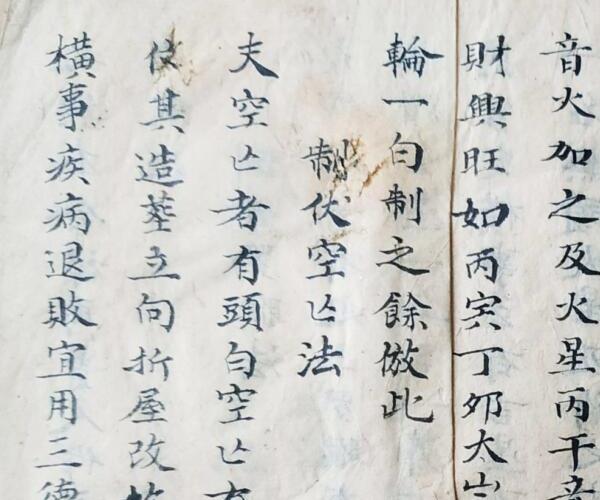 音火加之及火星丙干
財興旺如丙寅丁夘太山
輪一白制之餘倣此
制伏空亡法
夫空亡者有頭白空亡
其造塟立向折屋改
橫事疾病退敗宜用三德